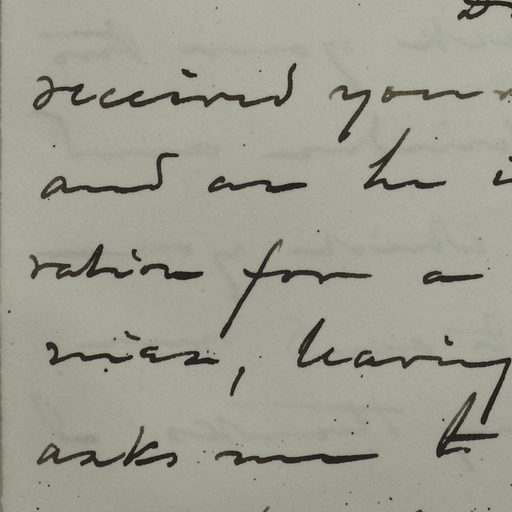 received your
and as he i
ration for a
nica, leaving
asks me to